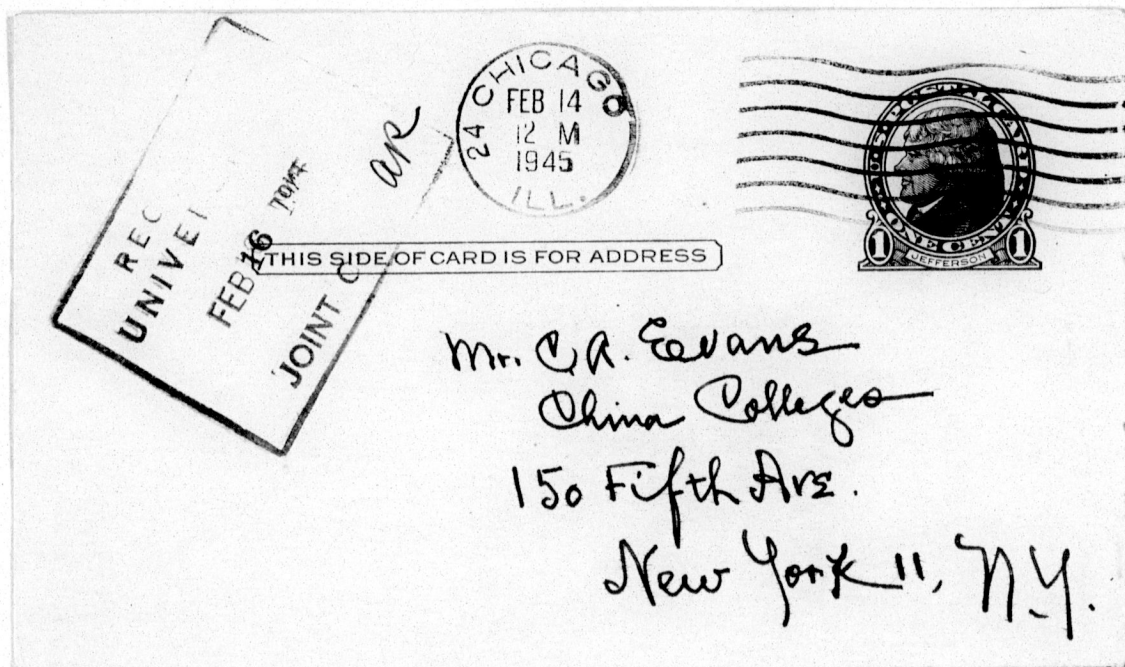 REC
UNIVE
FEB 16
JOINT C
24 CHICAGO
FEB 14
12 M
1945
ILL.
U.S. POSTAL CARD
ONE CENT
1 JEFFERSON 1
THIS SIDE OF CARD IS FOR ADDRESS
Mr. C. A. Eavans
China Colleges
150 Fifth Ave.
New York 11, N.Y.